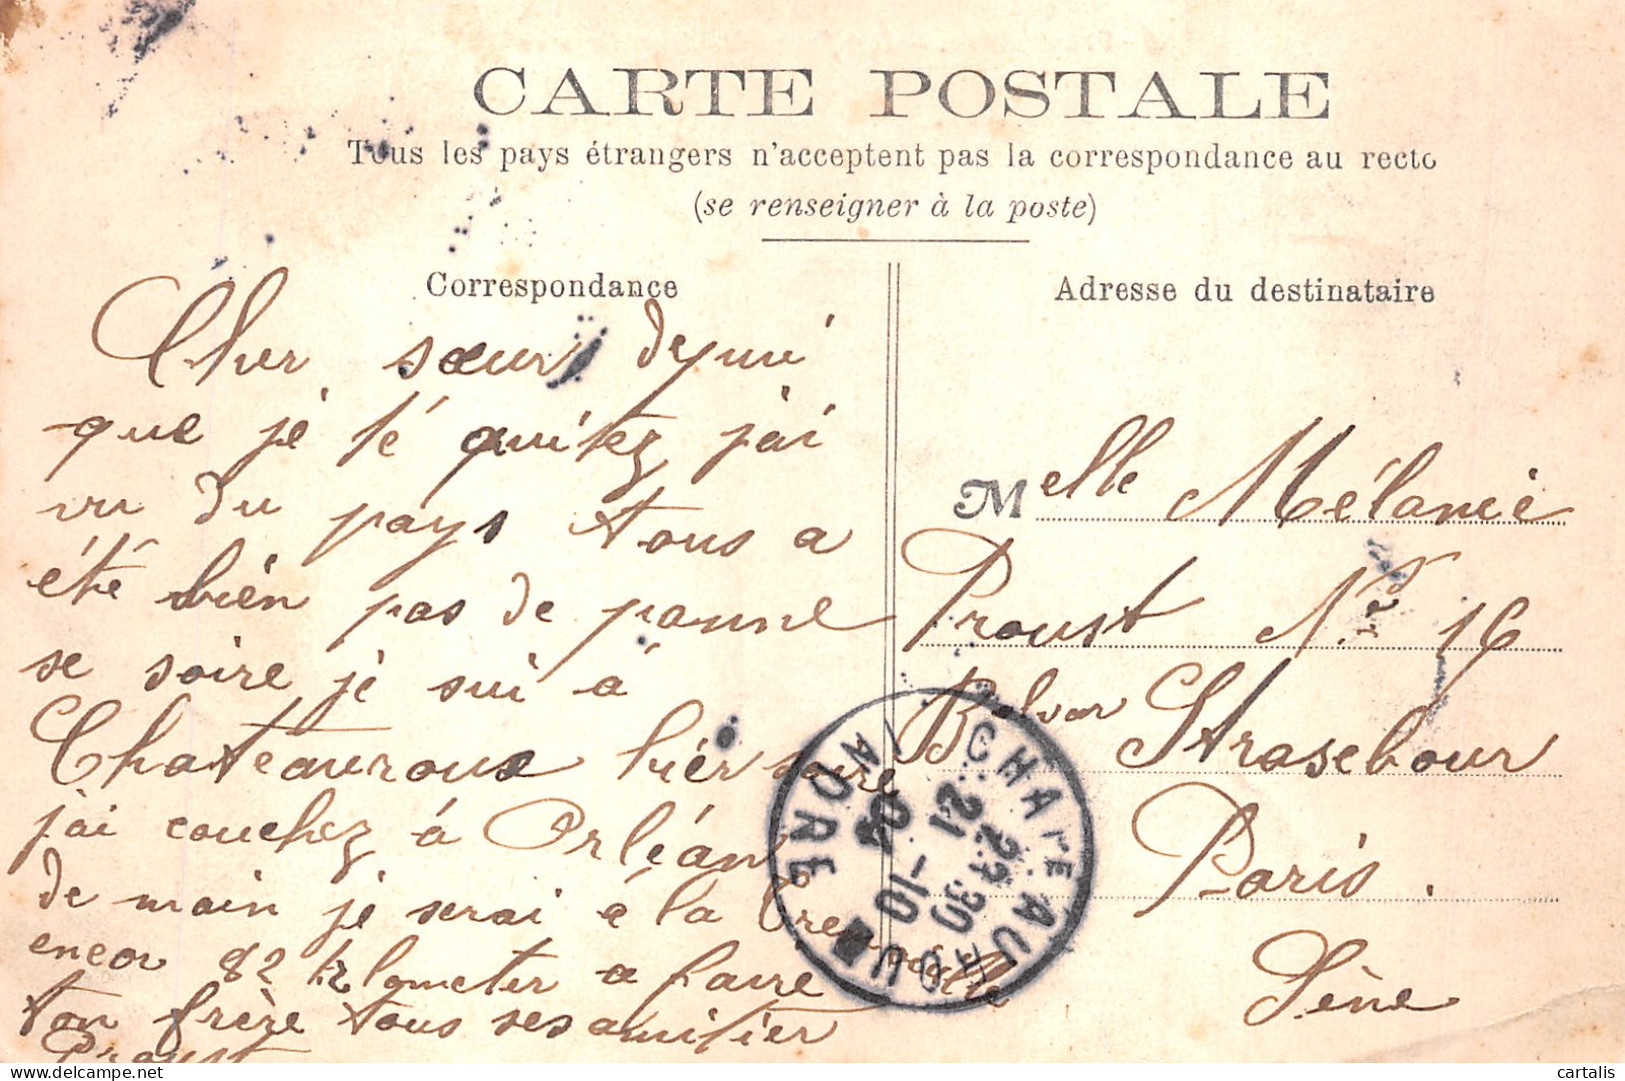 CARTE POSTALE
Tous les pays étrangers n'acceptent pas la correspondance au recto
(se renseigner à la poste)
Correspondance
Cher sœur depui
que je té quitez j'ai
vu du pays tous a
été bién pas de panne
se soire je sui à
Chateauroux hiér soire
j'ai couchez à Orléan
de main je serai a la
encor 82 kilometer a faire
ton frère tous ses amitier
Proust
Adresse du destinataire
Melle Mélanie
Proust No 16
Bolvar Strasebour
Paris.
Séne
CHATEAUROUX
INDRE
21 -10
04
cartalis